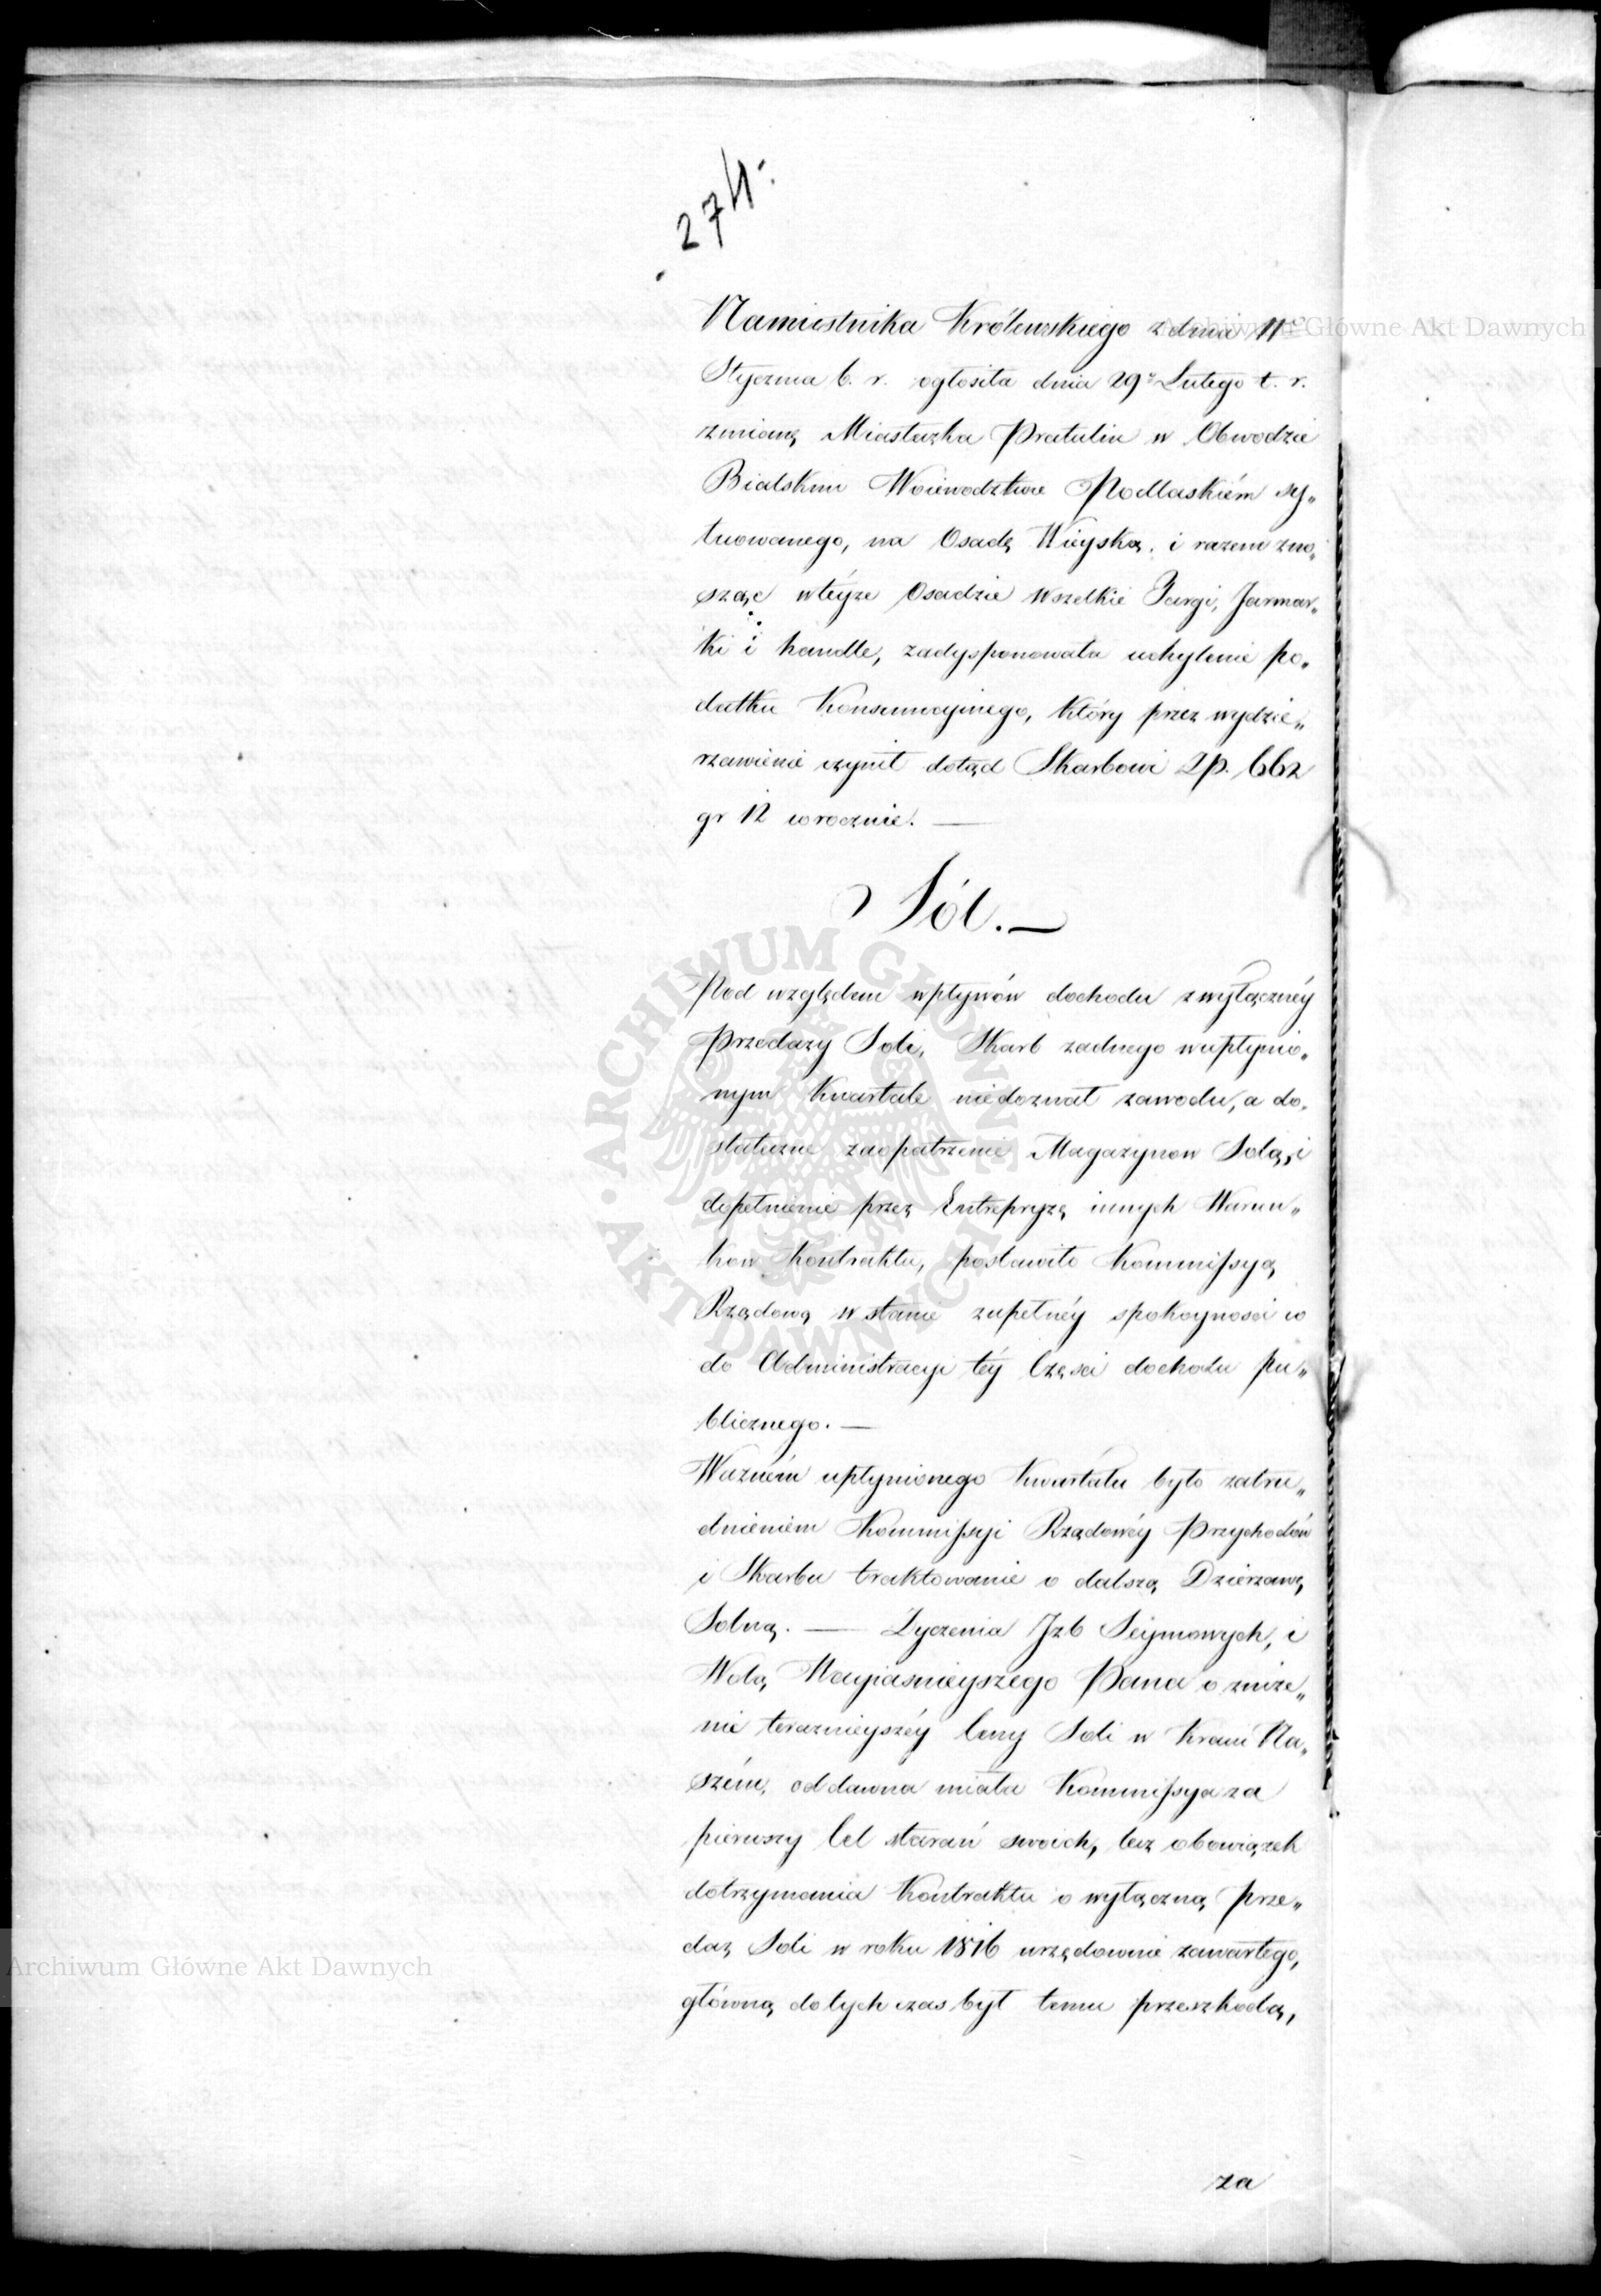 274.
Namiestnika Królewskiego z dnia 11º
Stycznia b. r. ogłosiła dnia 29º Lutego t. r.
zmianę Miasteczka Pratulin w Obwodzie
Bialskim Woiewodztwie Podlaskiém sy„
tuowanego, na Osadę Wieyską, i razem zno„
sząc wtéyże Osadzie wszelkie Targi, Jarmar„
ki i handle, zadysponowała uchylenie po„
datku Konsumcyinego, który przez wydzie„
rzawienie czynił dotąd Skarbowi Zp. 662
gr 12 corocznie. —
Sól. —
Pod względem wpływów dochodu z wyłącznéy
Przedaży Soli, Skarb żadnego w upłynio„
nym Kwartale niedoznał zawodu, a do„
stateczne zaopatrzenie Magazynow Solą, i
dopełnienie przez Entrepryzę innych Warun„
kow Kontraktu, postawiło Kommissyą
Rządową w stanie zupełnéy spokoyności co
do Administracyi téy Części dochodu pu„
blicznego. —
Ważném upłynionego Kwartału było zatru„
dnieniem Kommissyi Rządowéy Przychodów
i Skarbu traktowanie o dalszą Dzierzawę
Solną. — Życzenia Izb Seymowych, i
Wolą Nayiaśnieyszego Pana o zniże„
nie teraznieyszéy Ceny Soli w Kraiu Na„
szém, oddawna miała Kommissya za
pierwszy Cel starań swoich, lecz obowiązek
dotrzymania Kontraktu o wyłączną prze„
daż Soli w roku 1816 urzędownie zawartego,
główną dotychczas był temu przeszkodą,
za
Archiwum Główne Akt Dawnych
Archiwum Główne Akt Dawnych
ARCHIWUM GŁÓWNE AKT DAWNYCH